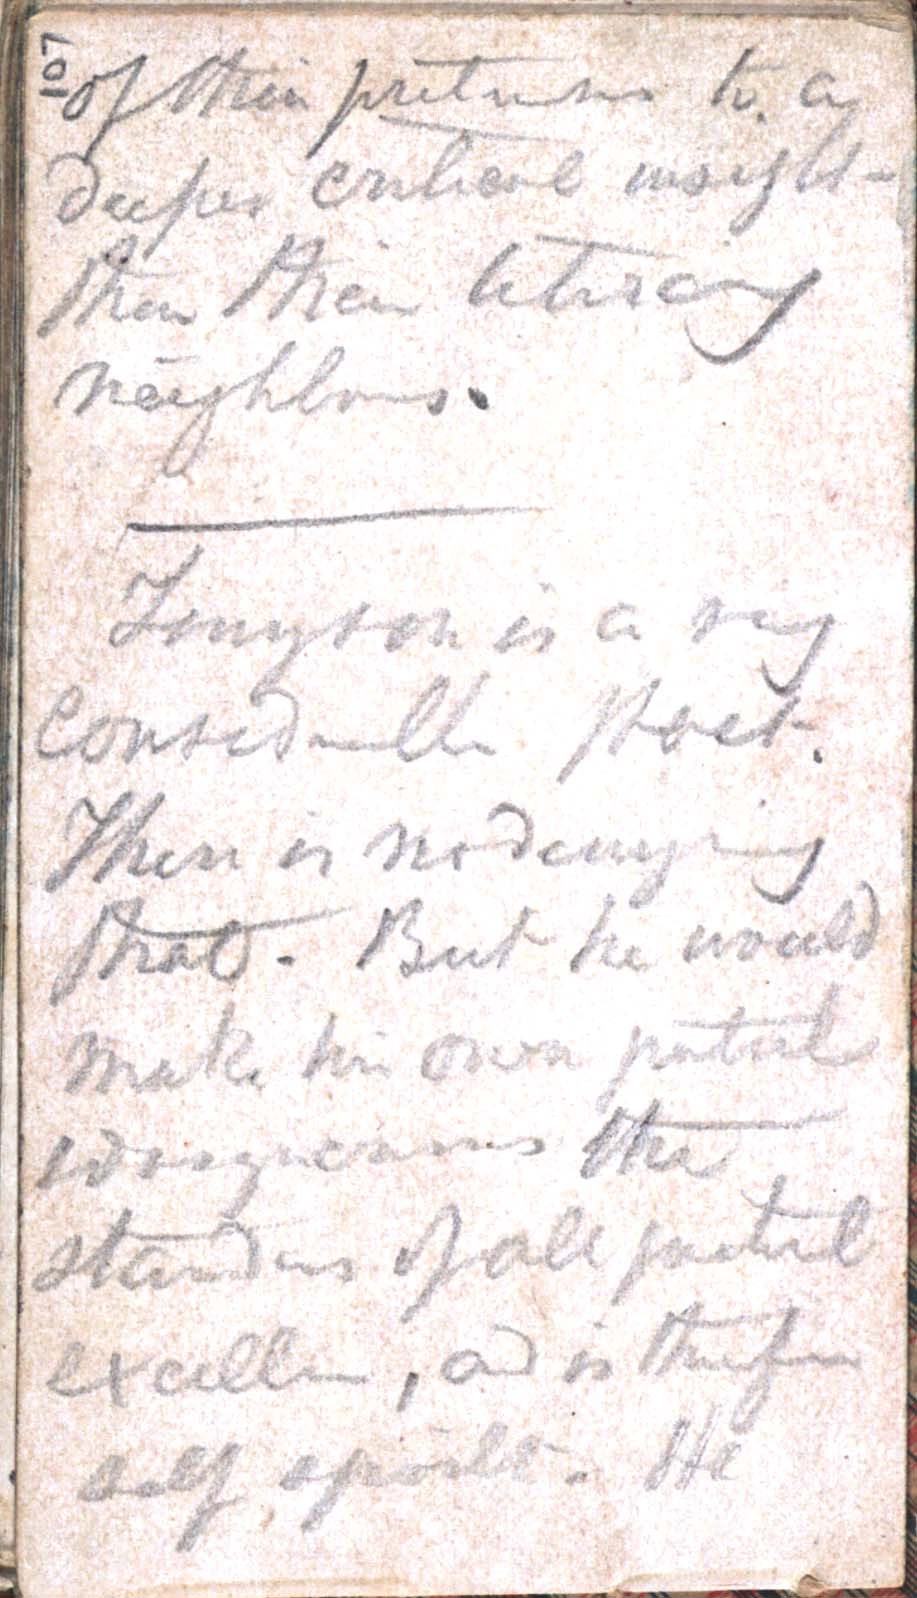 107
of their pretensions to a
deeper critical insight
than their literary
neighbours.
Tennyson is a very
considerable Poet.
There is no denying
that. But he would
make his own poetical
the
standards of all poetical
excellence, and is therefore
self spoilt. He